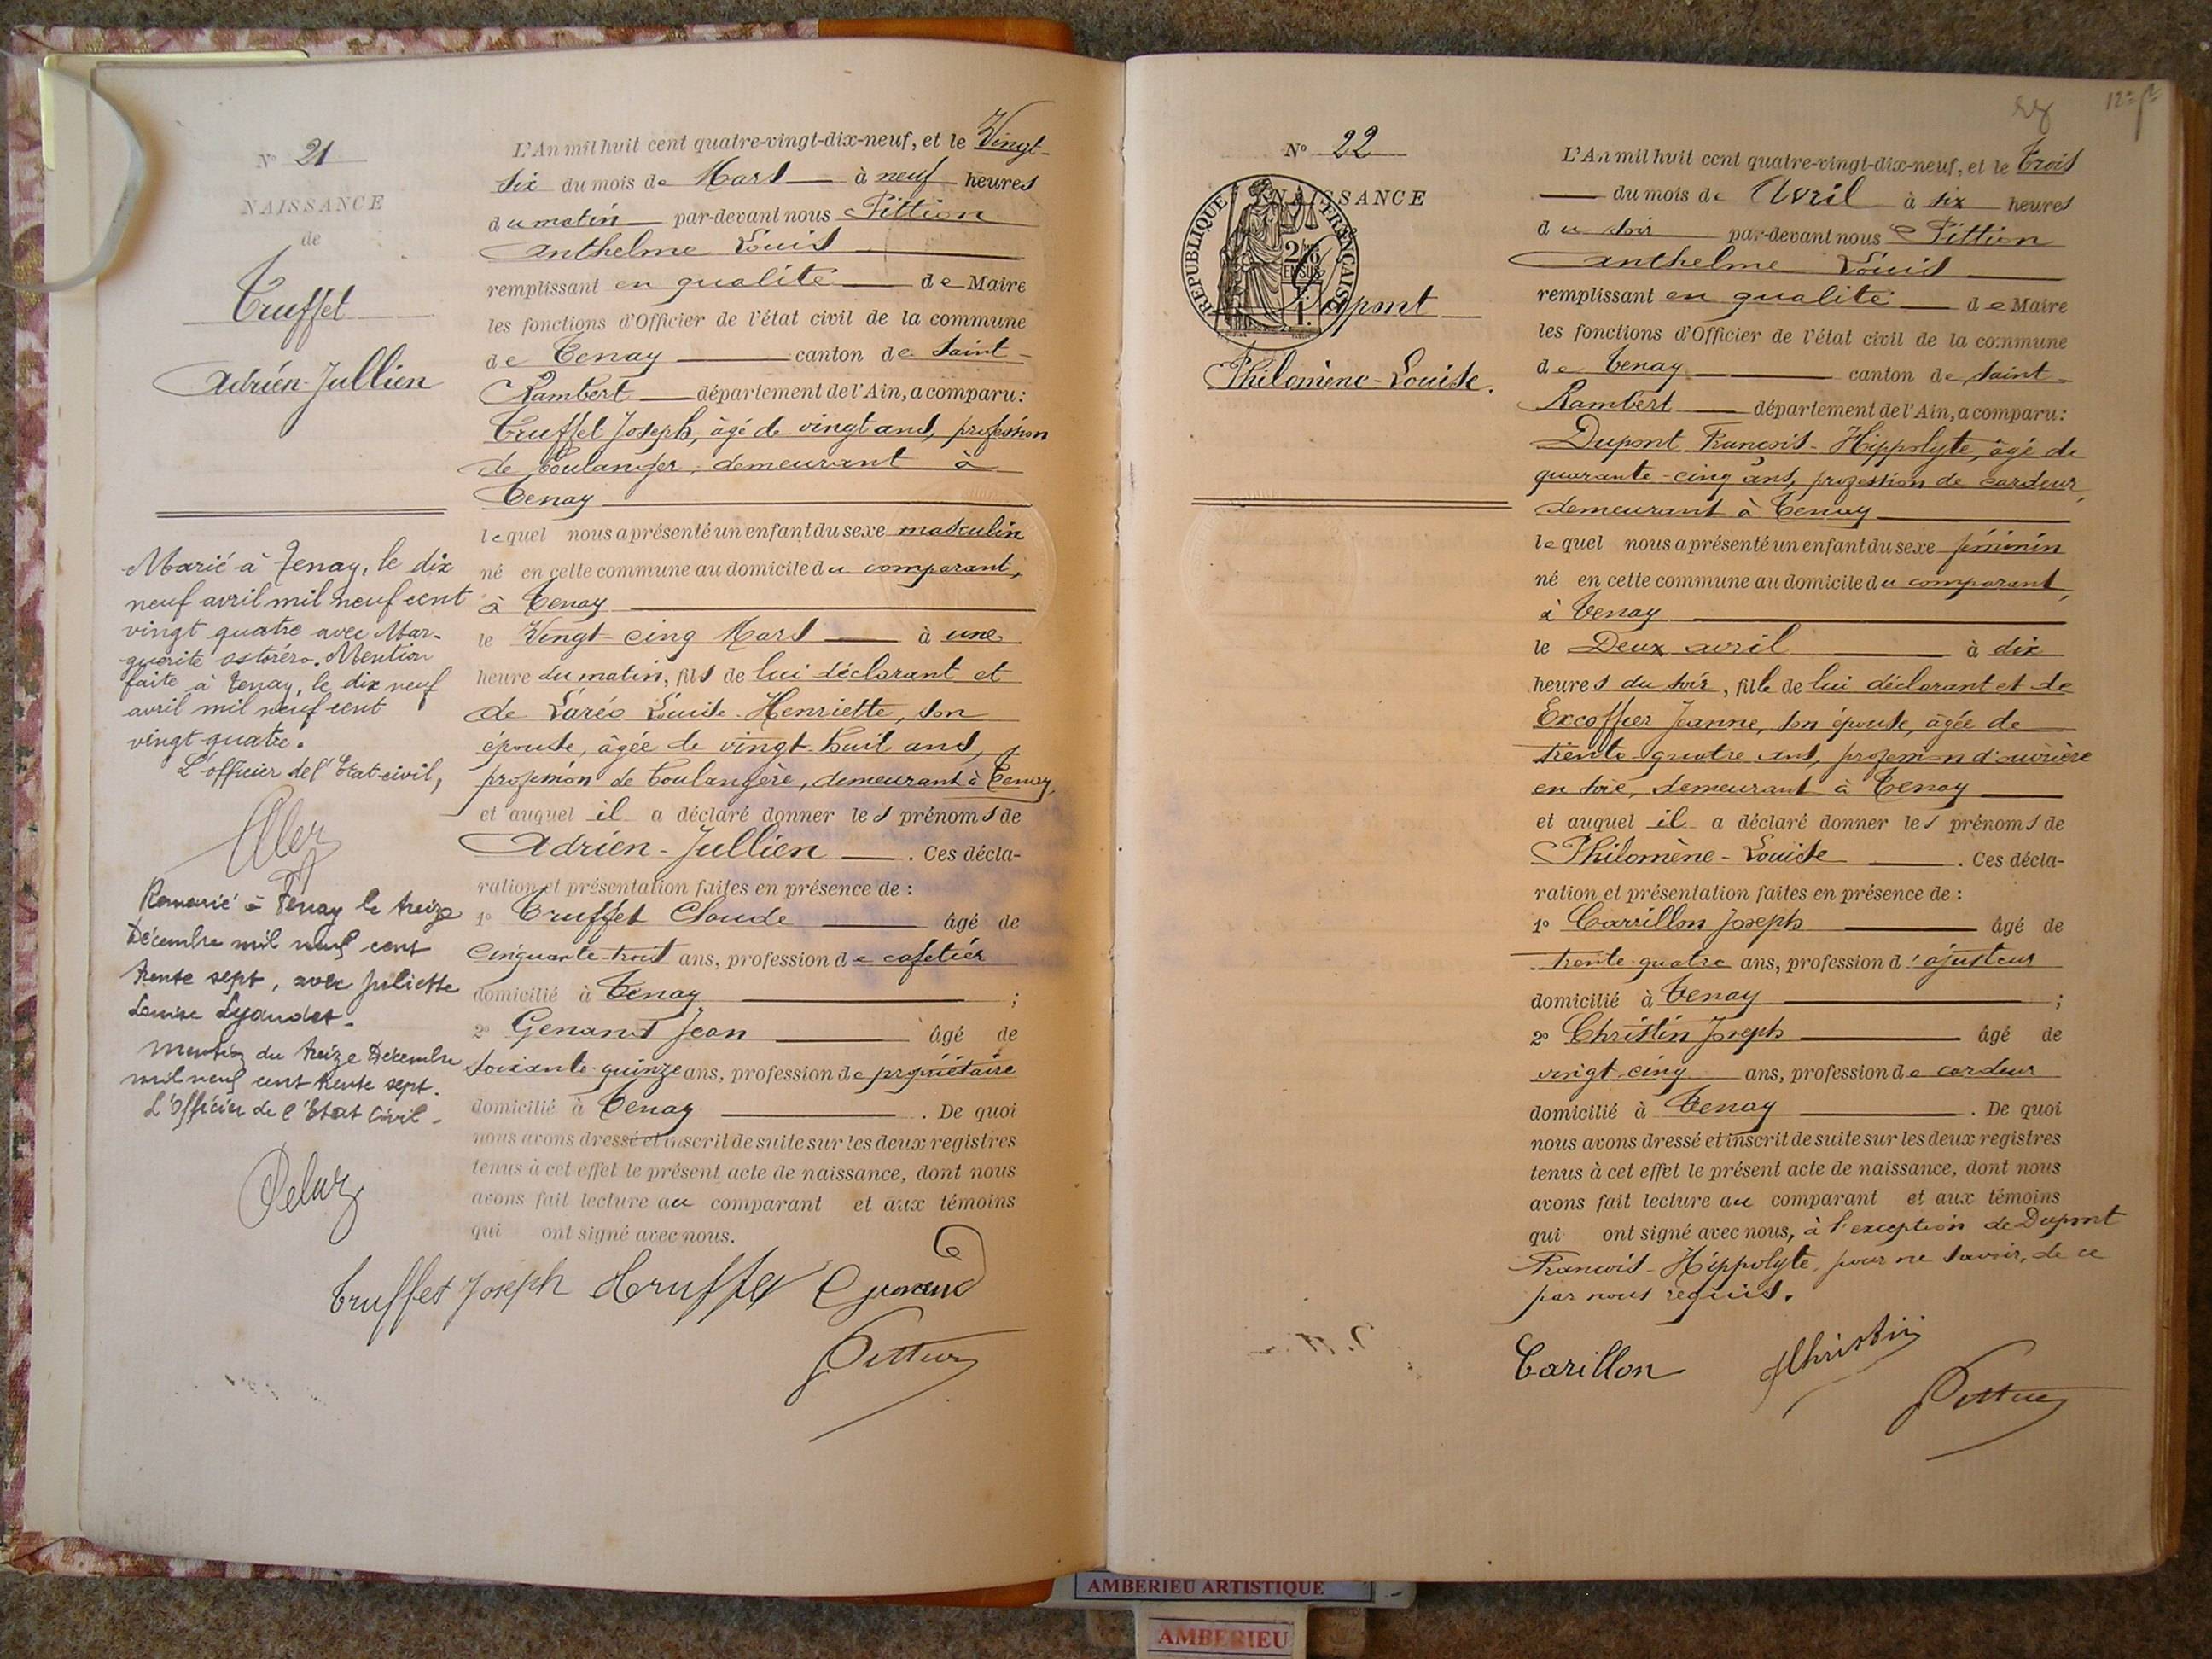 N° 21
NAISSANCE
de
Truffet
Adrien-Jullien
Marié à Tenay, le dix
neuf avril mil neuf cent
vingt quatre avec Mar-
guerite Astoréro. Mention
faite à Tenay, le dix neuf
avril mil neuf cent
vingt quatre.
L'officier de l'Etat-civil,
Remarié à Tenay le treize
Décembre mil neuf cent
trente sept, avec Juliette
Louise Lyaudet.
Mention du treize Décembre
mil neuf cent trente sept.
L'Officier de l'Etat Civil.
L'An mil huit cent quatre-vingt-dix-neuf, et le Vingt-
six du mois de Mars à neuf heures
du matin par-devant nous Pittion
Anthelme Louis
remplissant en qualité de Maire
les fonctions d'Officier de l'état civil de la commune
de Tenay canton de Saint-
Rambert département de l'Ain, a comparu:
Truffet Joseph, âgé de vingt ans, profession
de boulanger, demeurant à
Tenay
lequel nous a présenté un enfant du sexe masculin
né en cette commune au domicile du comparant,
à Tenay
le Vingt-cinq Mars à une
heure du matin, fils de lui déclarant et
de Laréo Louise-Henriette, son
épouse, âgée de vingt-huit ans,
profession de boulangère, demeurant à Tenay,
et auquel il a déclaré donner les prénoms de
Adrien-Jullien. Ces décla-
ration et présentation faites en présence de :
1° Truffet Claude âgé de
cinquante-trois ans, profession de cafetier
domicilié à Tenay ;
2° Genand Jean âgé de
soixante-quinze ans, profession de propriétaire
domicilié à Tenay. De quoi
nous avons dressé et inscrit de suite sur les deux registres
tenus à cet effet le présent acte de naissance, dont nous
avons fait lecture au comparant et aux témoins
qui ont signé avec nous.
Truffet Joseph
N° 22
NAISSANCE
RÉPUBLIQUE FRANÇAISE
Dupont
Philomène-Louise.
L'An mil huit cent quatre-vingt-dix-neuf, et le Trois
du mois de Avril à six heures
du soir par-devant nous Pittion
Anthelme Louis
remplissant en qualité de Maire
les fonctions d'Officier de l'état civil de la commune
de Tenay canton de Saint-
Rambert département de l'Ain, a comparu:
Dupont François-Hippolyte, âgé de
quarante-cinq ans, profession de cardeur,
demeurant à Tenay
lequel nous a présenté un enfant du sexe féminin
né en cette commune au domicile du comparant,
à Tenay
le Deux avril à dix
heures du soir, fille de lui déclarant et de
Excoffier Jeanne, son épouse, âgée de
trente-quatre ans, profession d'ouvrière
en soie, demeurant à Tenay
et auquel il a déclaré donner les prénoms de
Philomène-Louise. Ces décla-
ration et présentation faites en présence de :
1° Carrillon Joseph âgé de
trente-quatre ans, profession d'ajusteur
domicilié à Tenay ;
2° Christin Joseph âgé de
vingt cinq ans, profession de cardeur
domicilié à Tenay. De quoi
nous avons dressé et inscrit de suite sur les deux registres
tenus à cet effet le présent acte de naissance, dont nous
avons fait lecture au comparant et aux témoins
qui ont signé avec nous, à l'exception de Dupont
François-Hippolyte, pour ne savoir, de ce
par nous requis.
Carillon JChristin
Pittion
AMBERIEU ARTISTIQUE
AMBERIEU